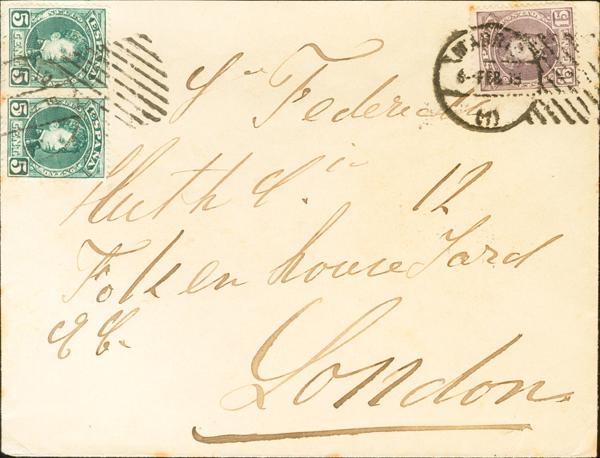 5 CENTS
ESPAÑA
5 CENTS
ESPAÑA
15
6-FEB
(7)
Sr Federico
Huth Cia 12
Token house Yard
E C.
London